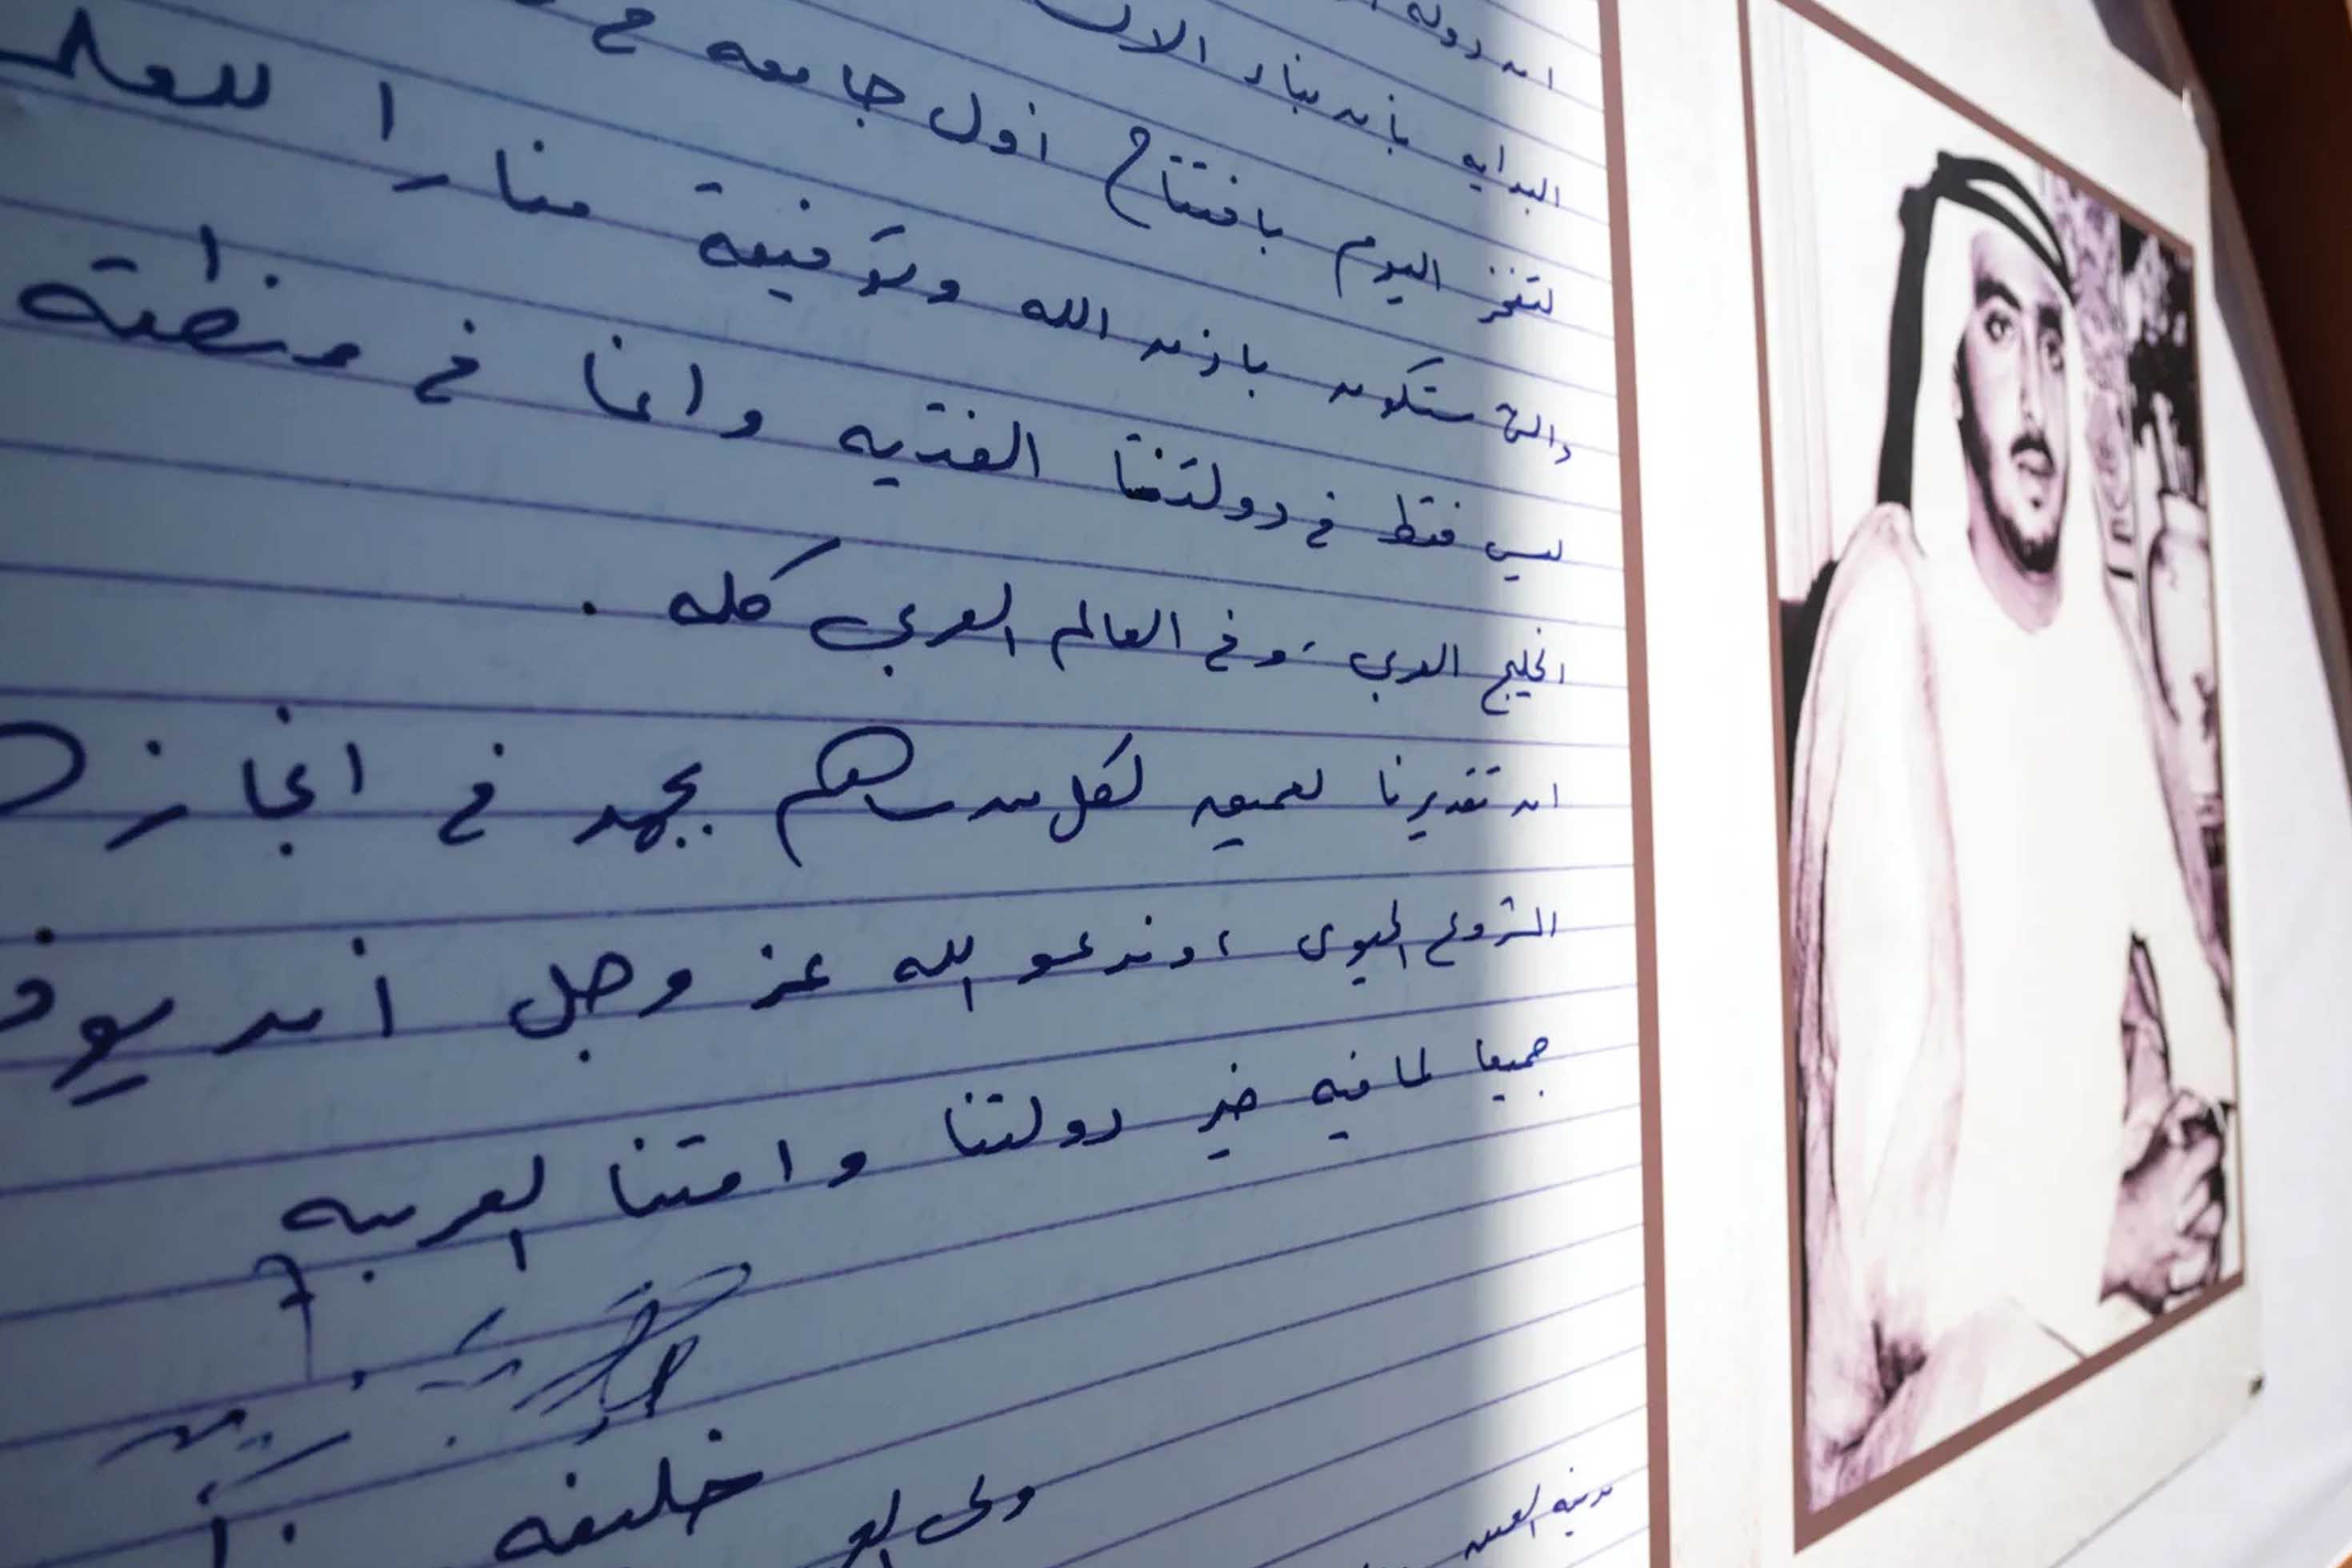 ان دولة
البدايه بأن بناء الانسا
لتفخر اليوم بافتتاح أول جامعه في
والتي ستكون باذن الله وتوفيقة منارا للعلم
ليس فقط في دولتنا الفتيه وانما في منطقة
الخليج العربي ، وفي العالم العربي كله .
ان تقديرنا لعميق لكل من ساهم بجهد في انجاز هـ
المشروع الحيوى ، وندعو الله عز وجل أن يوف
جميعا لما فيه خير دولتنا وامتنا العربيه
خليفه
ولى الع
مدينة العين